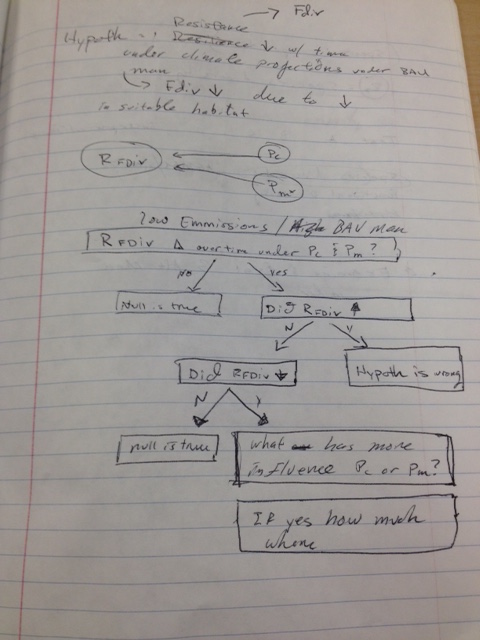 Resistance → Fdiv
Hypoth.: Resilience ↓ w/ time
under climate projections under BAU
man
↳ Fdiv ↓ due to ↓
in suitable habitat
RFDiv
Pc
Pm
low Emmissions / High BAU man
RFDiv Δ over time under Pc & Pm?
No yes
Null is true
Did RFDiv ↑
N Y
Did RFDiv ↓
Hypoth is wrong
N Y
null is true
what has more
influence Pc or Pm?
IF yes how much
where